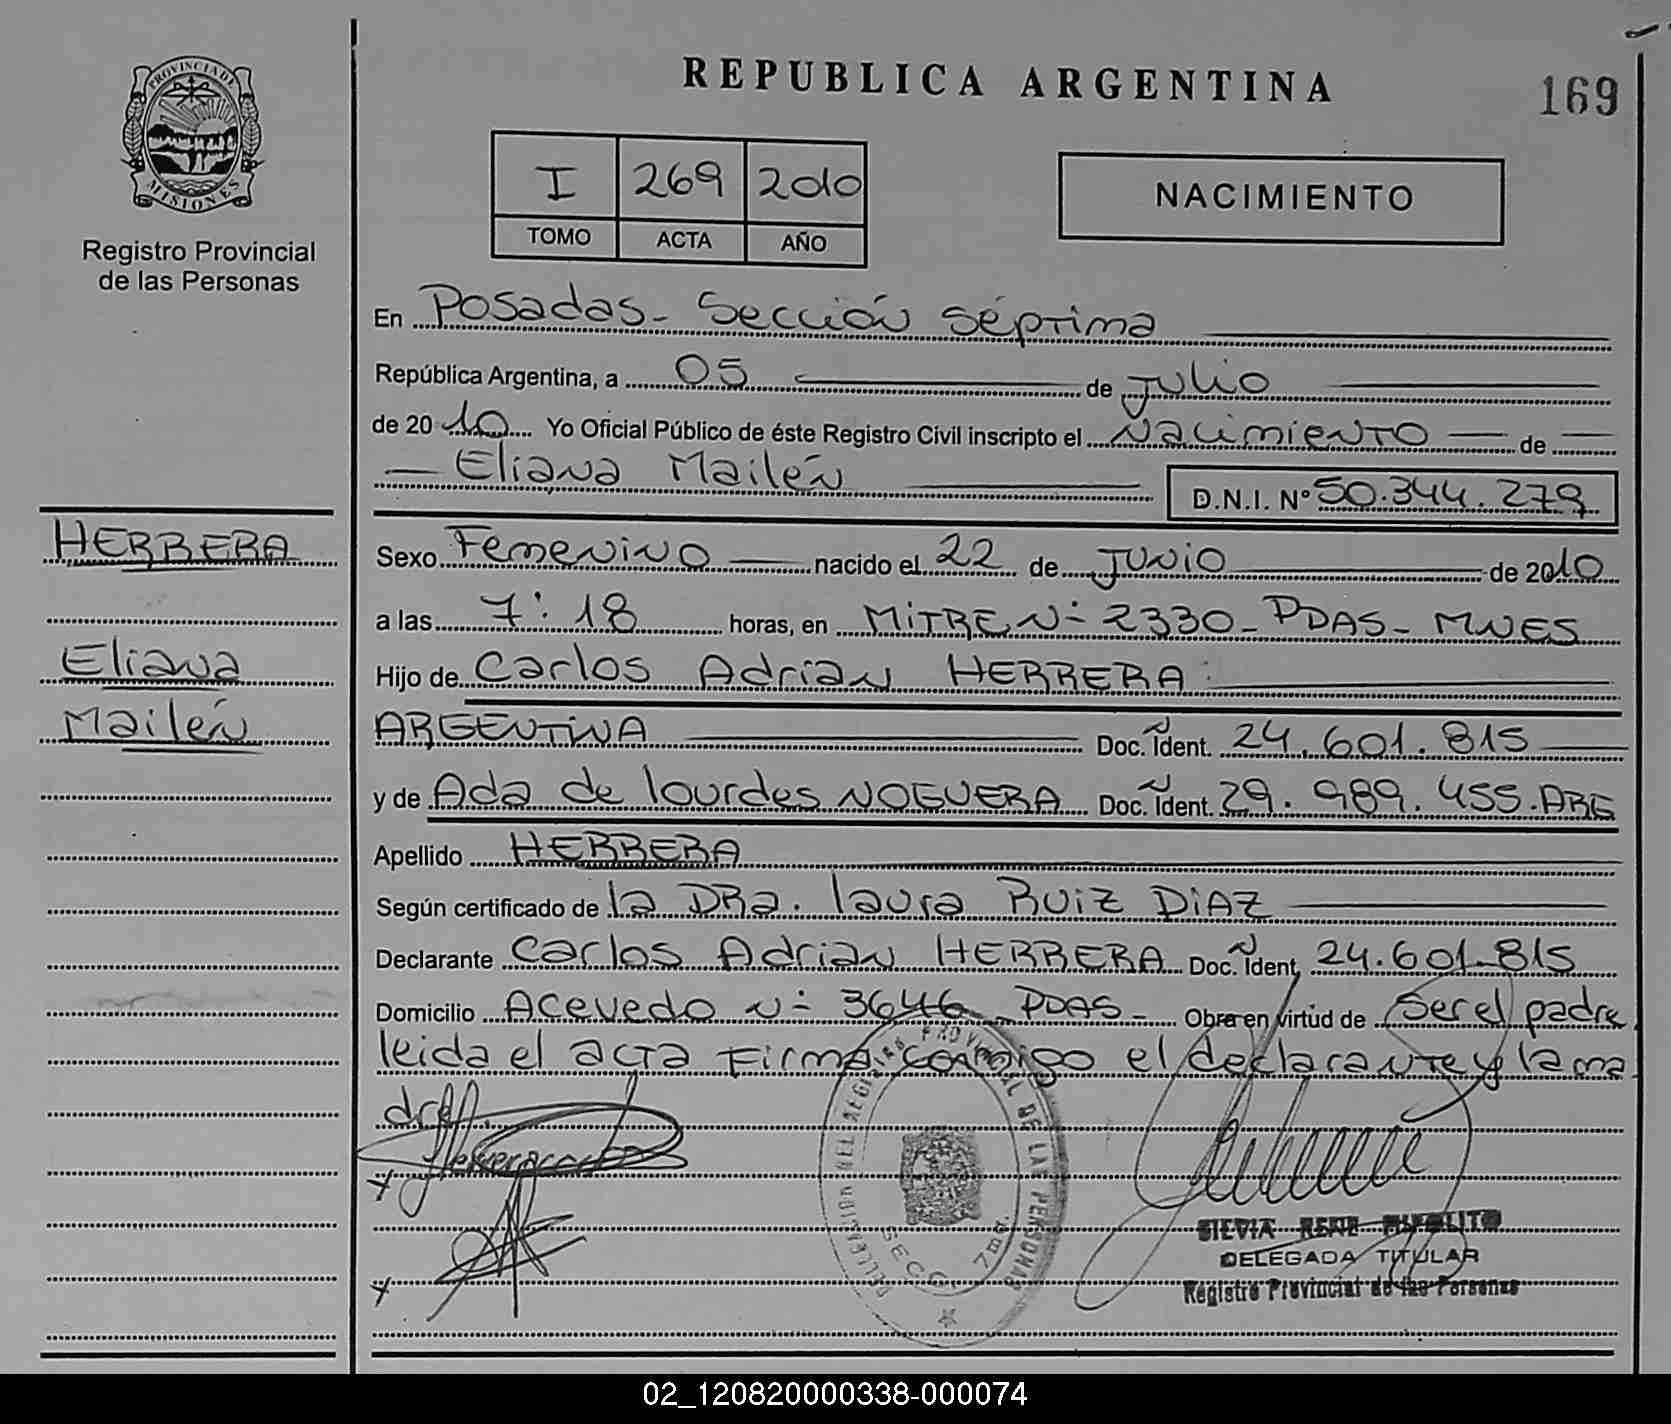 PROVINCIA DE
MISIONES
Registro Provincial
de las Personas
REPUBLICA ARGENTINA
169
I 269 2010
TOMO ACTA AÑO
NACIMIENTO
En Posadas- Sección séptima
República Argentina, a 05 de Julio
de 2010 Yo Oficial Público de éste Registro Civil inscripto el Nacimiento de
Eliana Mailén
D.N.I. Nº 50.344.279
HERRERA
Eliana
Mailén
Sexo Femenino nacido el 22 de Junio de 2010
a las 7:18 horas, en MITRE Nº 2330- PDAS- MNES
Hijo de Carlos Adrian HERRERA
ARGENTINA Doc. Ñ Ident. 24.601.815
y de Ada de lourdes NOGUERA Doc. Ñ Ident. 29.989.455.ARG
Apellido HERRERA
Según certificado de la DRa. laura RUIZ DIAZ
Declarante Carlos Adrian HERRERA Doc. Ñ Ident. 24.601.815
Domicilio Acevedo Nº 3646 PDAS- Obra en virtud de Ser el padre
leida el acta Firma conmigo el declarante y la ma
dre.
DELEGACION DEL REGISTRO PROVINCIAL DE LAS PERSONAS
SECC. 7ma.
DELEGADA TITULAR
Registro Provincial de las Personas
02_120820000338-000074